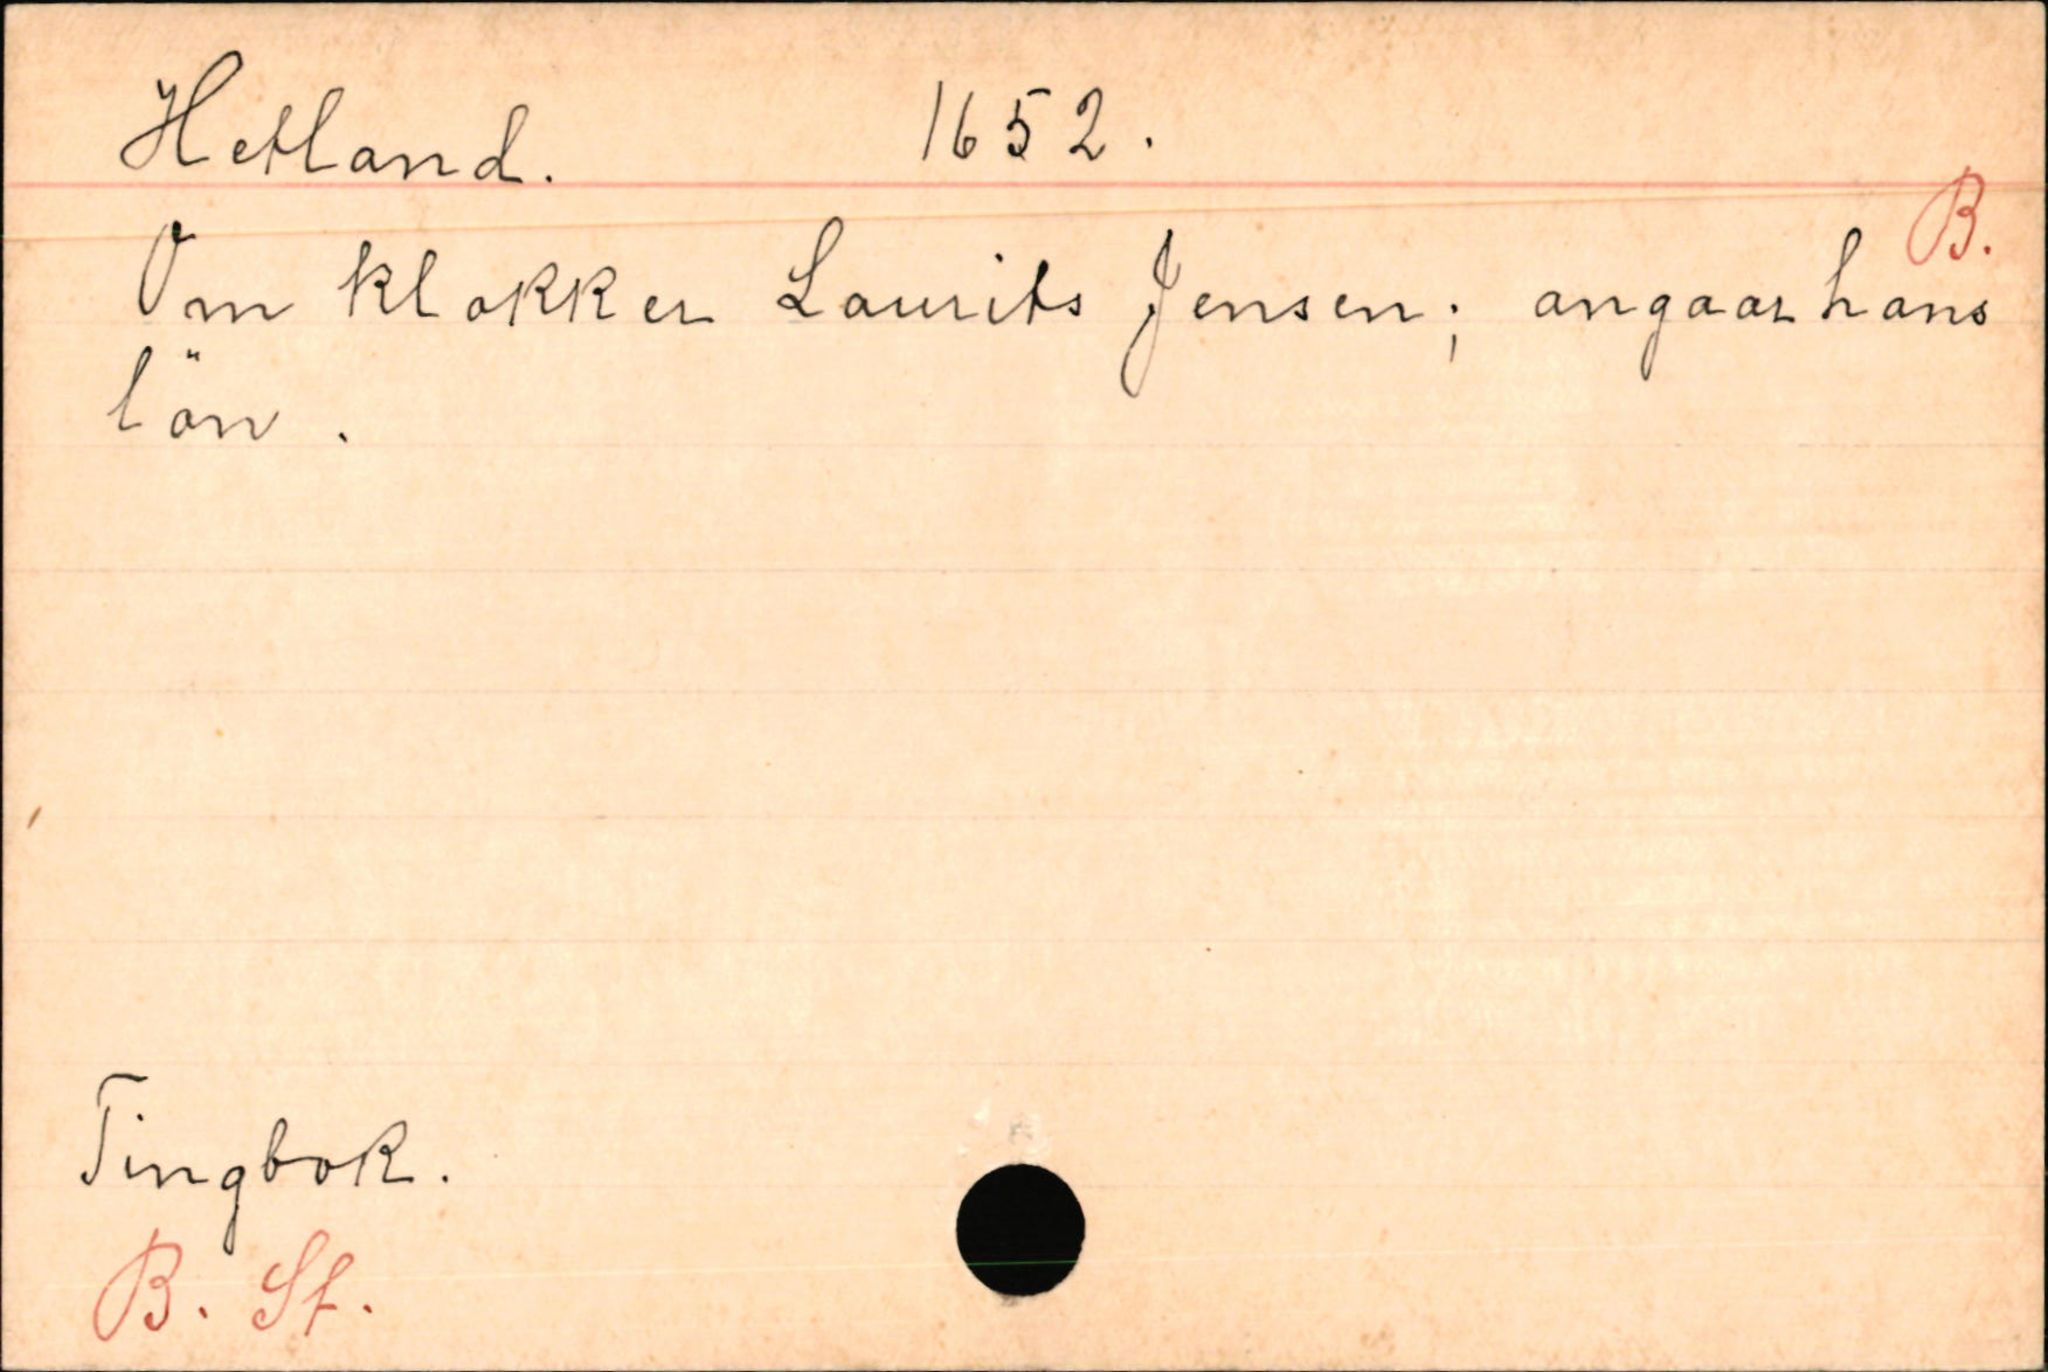 Hetland. 1652.
B.
Om klokker Laurits Jensen; angaar hans
lön.
Tingbok.
B. St.